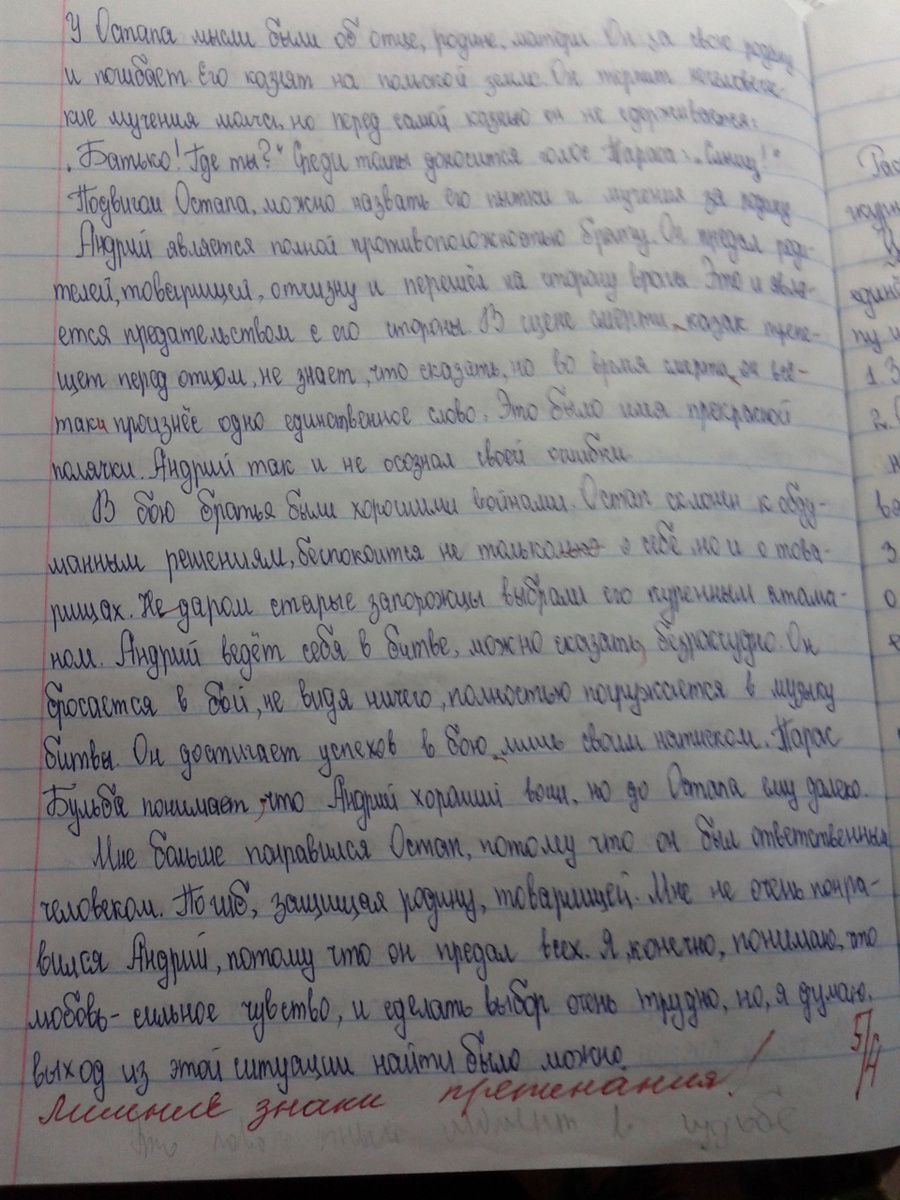 У Остапа мысли были об отце, родине, матери. Он за свою родину
и погибает. Его казнят на польской земле. Он терпит нечеловечес-
кие мучения молча, но перед самой казнью он не сдерживается:
„Батько! Где ты?" Среди толпы доносится голос Тараса: „Слышу!"
Подвигом Остапа, можно назвать его пытки и мучения за родину
Андрий является полной противоположностью брату. Он предал роди-
телей, товарищей, отчизну и перешёл на сторону врага. Это и явля-
ется предательством с его стороны. В сцене смерти, казак трепе-
щет перед отцом, не знает, что сказать, но во время смерти, он всё-
таки произнёс одно единственное слово. Это было имя прекрасной
полячки. Андрий так и не осознал своей ошибки.
В бою братья были хорошими войнами. Остап склонен к обду-
манным решениям, беспокоится не только о себе, но и о това-
рищах. Не даром старые запорожцы выбрали его куренным атама-
ном. Андрий ведёт себя в битве, можно сказать, безрассудно. Он
бросается в бой, не видя ничего, полностью погружается в музыку
битвы. Он достигает успехов в бою, лишь своим натиском. Тарас
Бульба понимает, что Андрий хороший воин, но до Остапа ему далеко.
Мне больше понравился Остап, потому что он был ответственным
человеком. Погиб, защищая родину, товарищей. Мне не очень понра-
вился Андрий, потому что он предал всех. Я, конечно, понимаю, что
любовь - сильное чувство, и сделать выбор очень трудно, но, я думаю,
выход из этой ситуации найти было можно.
5/4
Лишние знаки препинания!